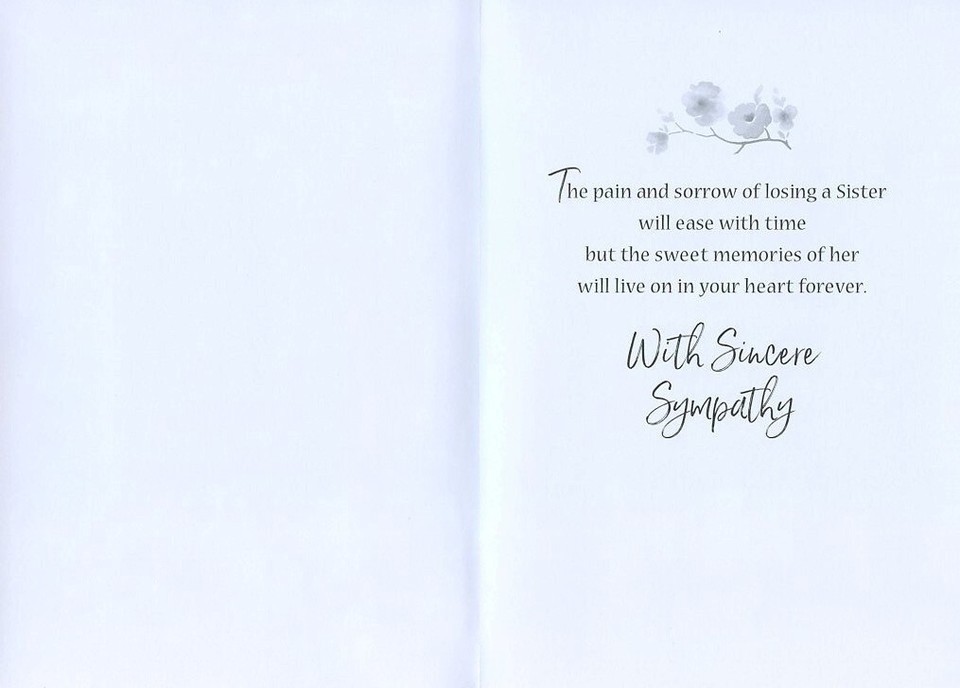 The pain and sorrow of losing a Sister
will ease with time
but the sweet memories of her
will live on in your heart forever.
With Sincere
Sympathy